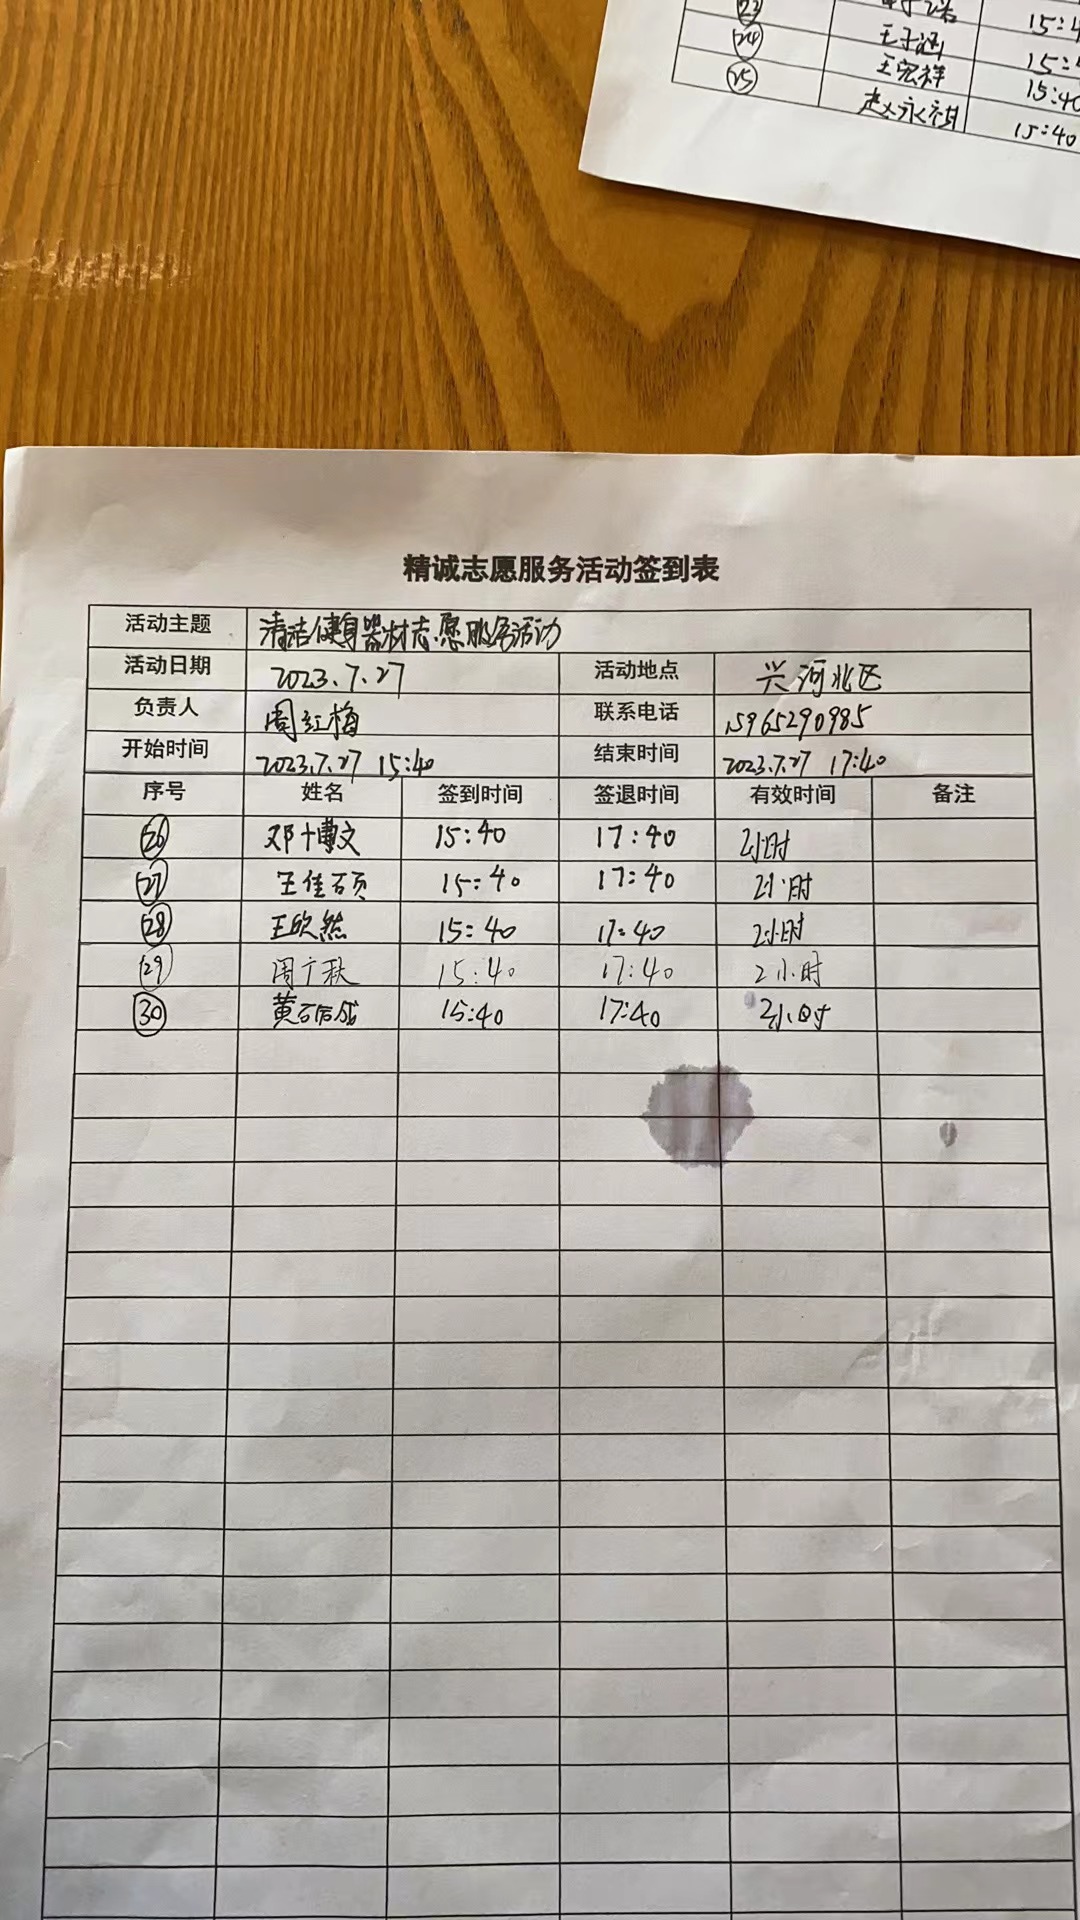 ㉓
15:4
㉔ 王子涵 15:4
㉕ 王宏祥 15:40
赵永祺 15:40
精诚志愿服务活动签到表
活动主题 清洁健身器材志愿服务活动
活动日期 2023.7.27 活动地点 兴河北区
负责人 周红梅 联系电话 15965290985
开始时间 2023.7.27 15:40 结束时间 2023.7.27 17:40
序号 姓名 签到时间 签退时间 有效时间 备注
㉖ 邓博文 15:40 17:40 2小时
㉗ 王佳硕 15:40 17:40 2小时
㉘ 王欣然 15:40 17:40 2小时
㉙ 周广秋 15:40 17:40 2小时
㉚ 黄 15:40 17:40 2小时